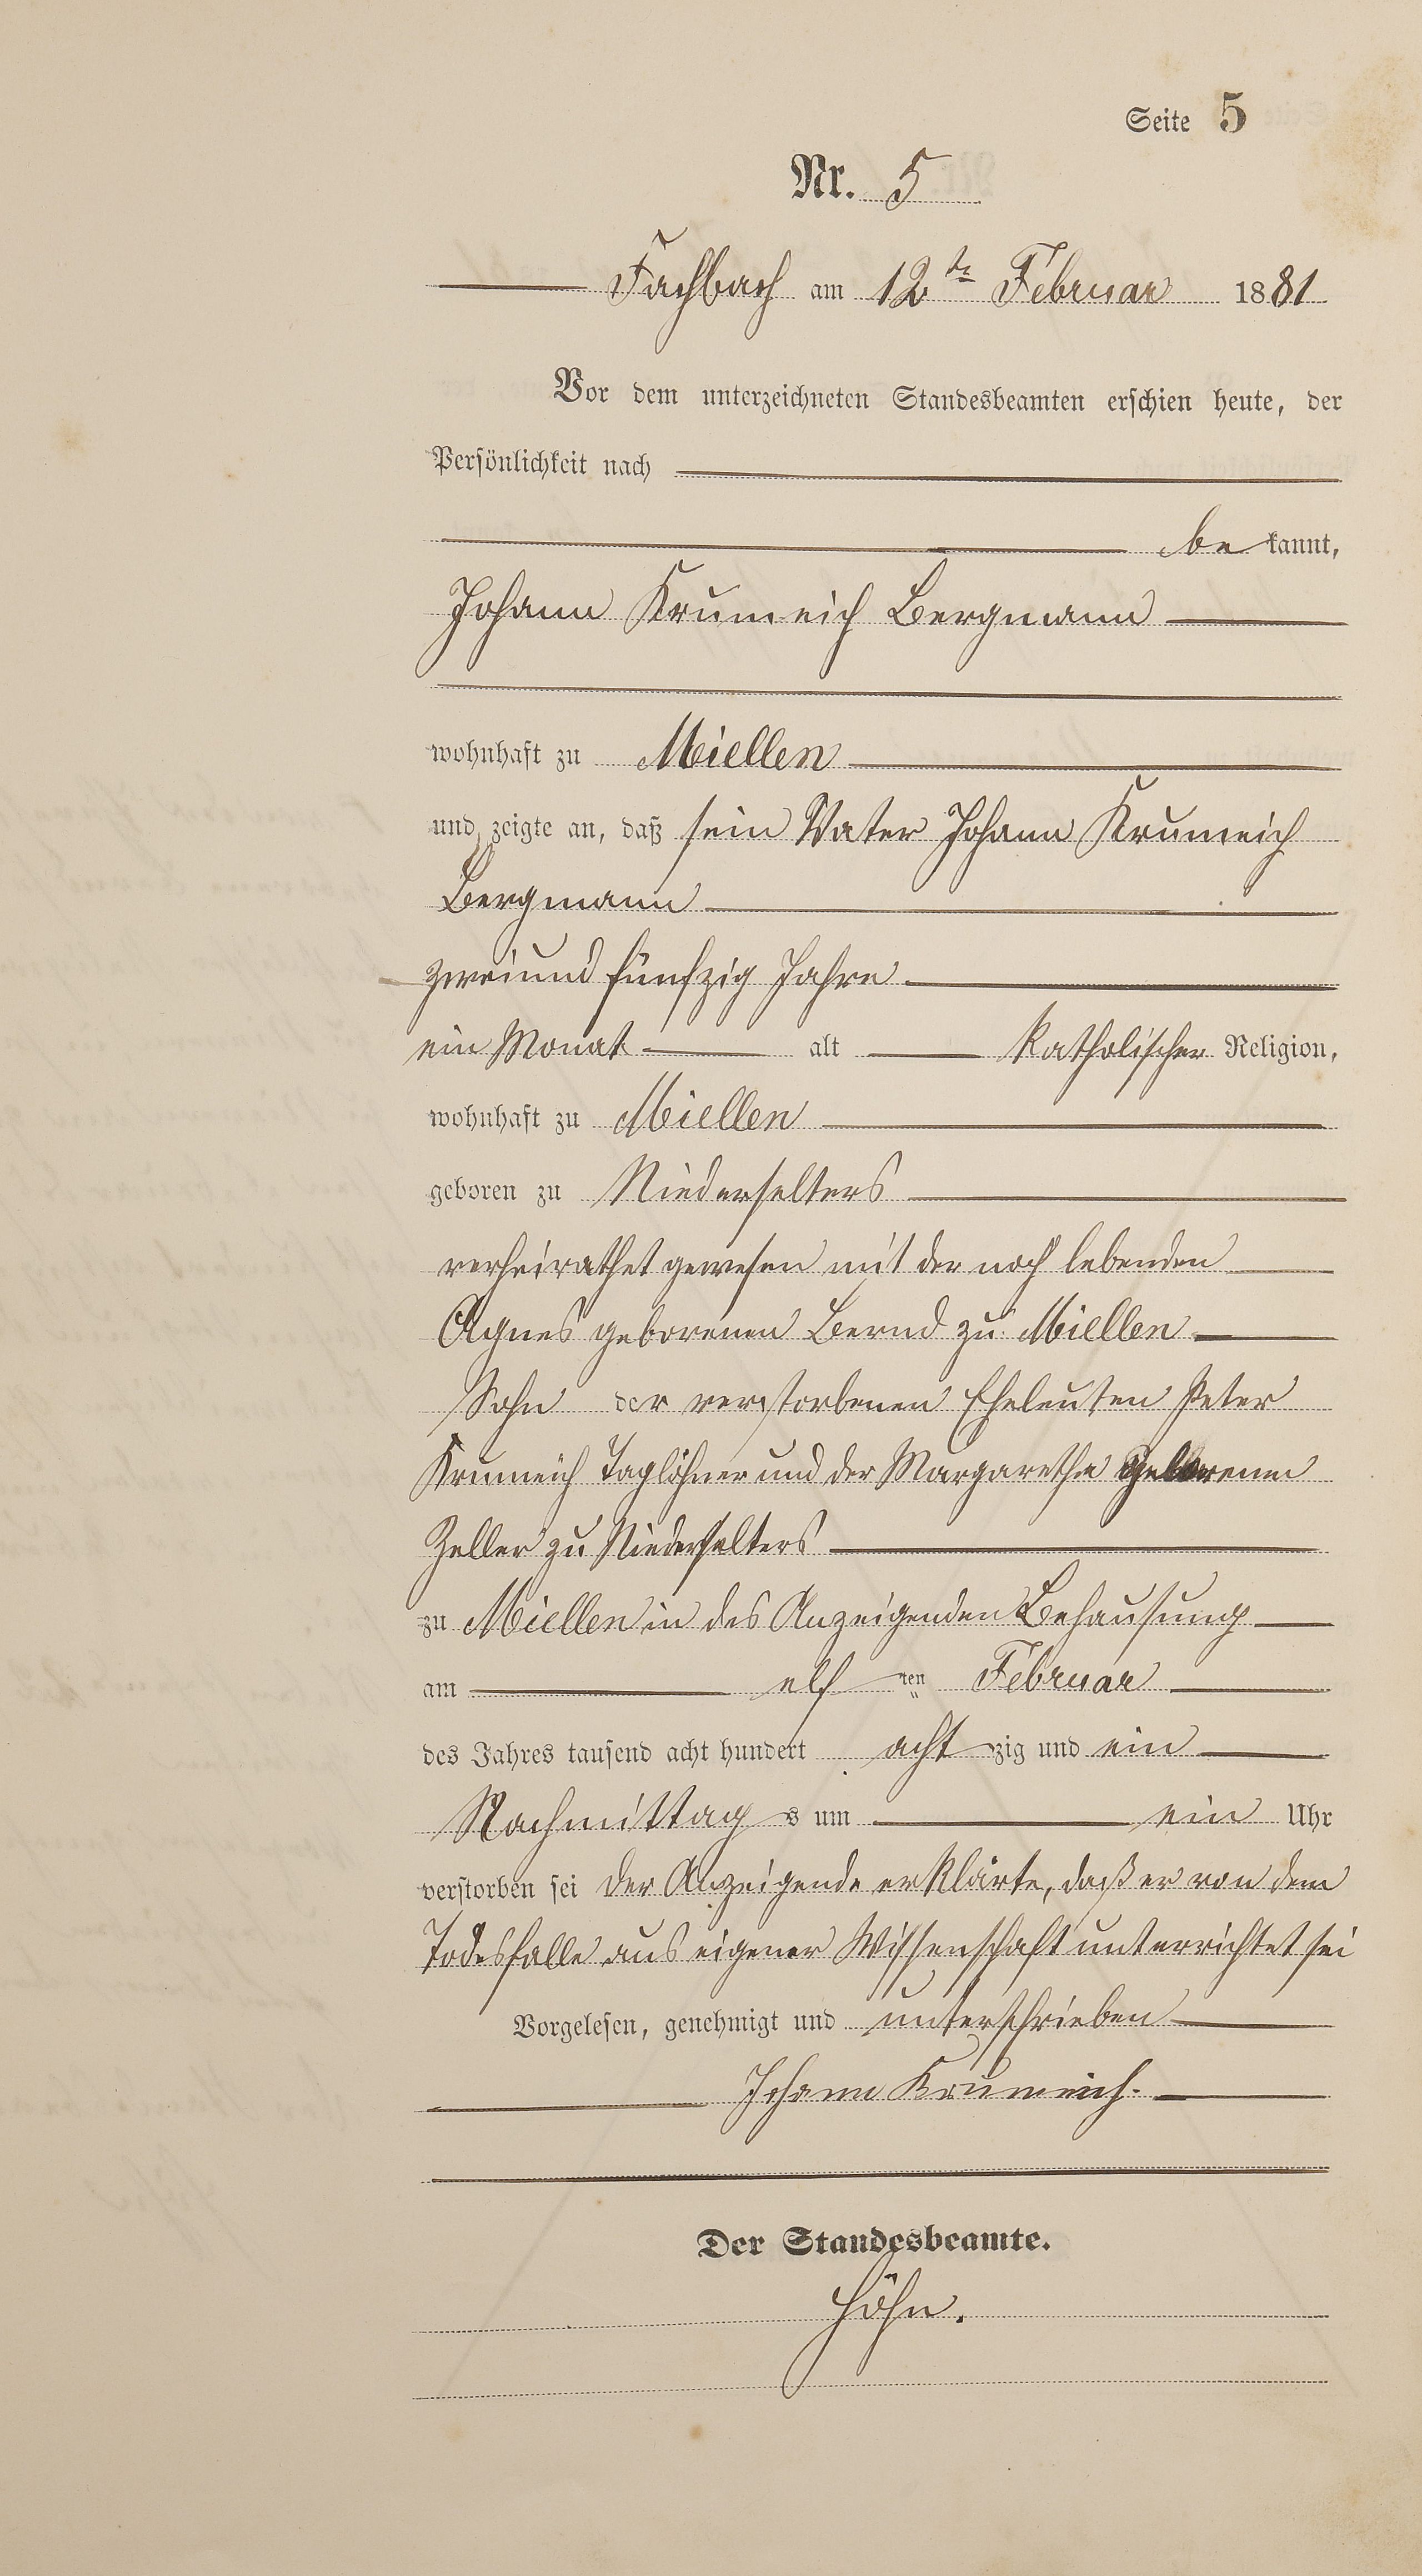 Seite 5
Nr. 5
Fachbach am 12te Februar 1881
Vor dem unterzeichneten Standesbeamten erschien heute, der
Persönlichkeit nach
be kannt,
Johann Krumeich Bergmann
wohnhaft zu Miellen
und zeigte an, daß sein Vater Johann Krumeich
Bergmann
zweiund fünfzig Jahre
ein Monat alt katholischer Religion,
wohnhaft zu Miellen
geboren zu Niederselters
verheirathet gewesen mit der noch lebenden
Agnes geborenen Bernd zu Miellen
Sohn der verstorbenen Eheleuten Peter
Krumeich Taglöhner und der Margaretha geborenen
Zeller zu Niederselters
zu Miellen in des Anzeigenden Behausung
am elf ten Februar
des Jahres tausend acht hundert acht zig und ein
Nachmittag s um ein Uhr
verstorben sei der Anzeigende erklärte, daß er von dem
Todesfalle aus eigener Wissenschaft unterrichtet sei
Vorgelesen, genehmigt und unterschrieben
Johann Krumeich.
Der Standesbeamte.
Höhn.